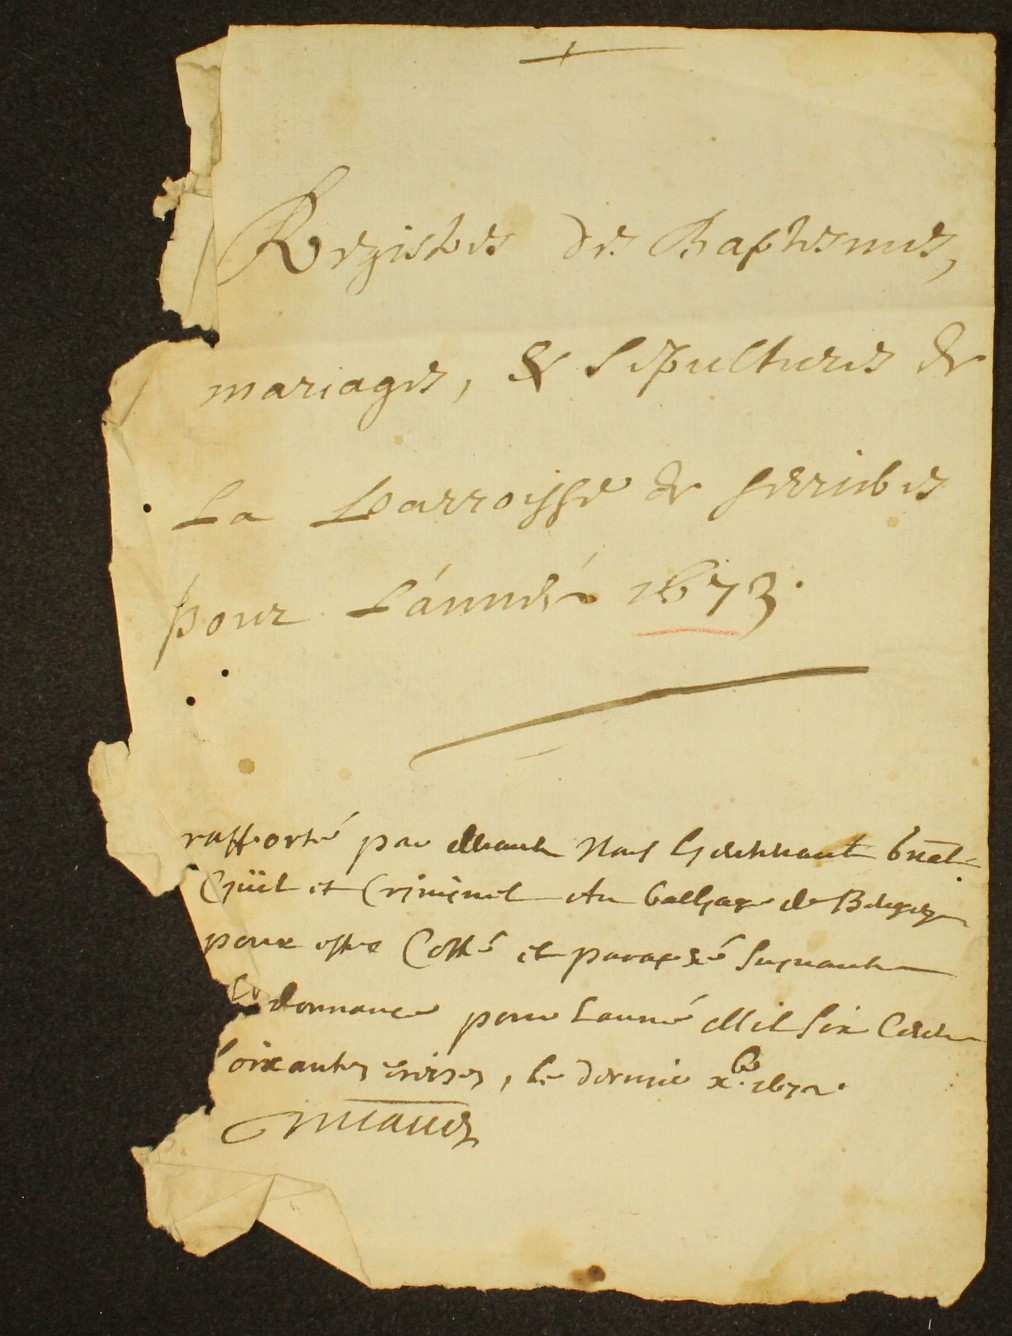 Registres des Baptesmes,
mariages, & sepultures de
La Parroisse de
pour L'année 1673.
pardevant Nous Lieutenant
Civil et Criminel Au bailliage de
pour estre Cotté et paraphé suyvant
L'ordonnance pour Lanné Mil Six Cent
soixante treize, le dernier xbre 1672.